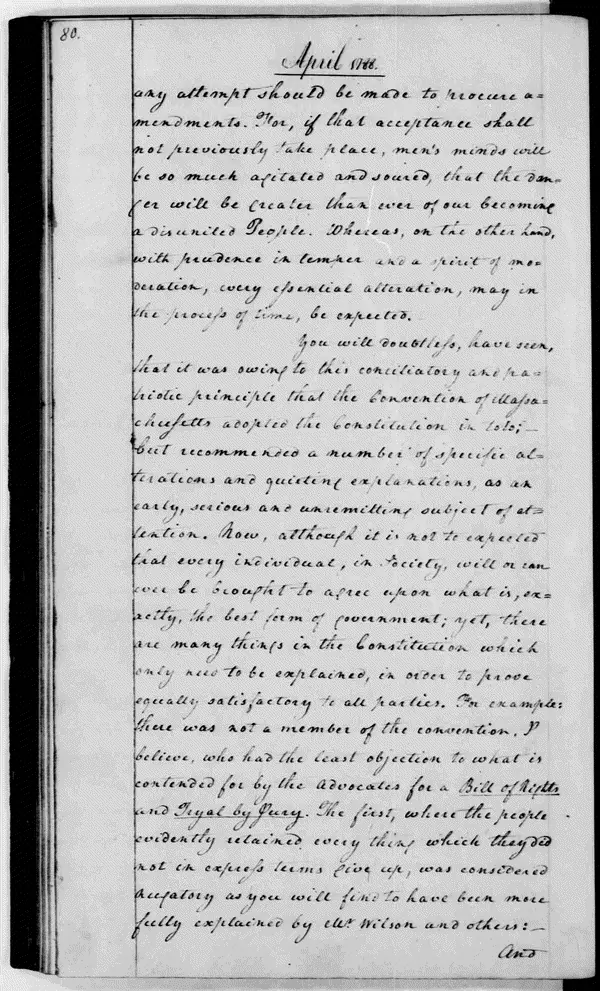 80.
April 1788.
any attempt should be made to procure a=
mendments. For, if that acceptance shall
not previously take place, men's minds will
be so much agitated and soured, that the dan=
ger will be greater than ever of our becoming
a disunited People. Whereas, on the other hand,
with prudence in temper and a spirit of mo=
deration, every essential alteration, may in
the process of time, be expected.
You will doubtless, have seen,
that it was owing to this conciliatory and pa=
triotic principle that the Convention of Massa=
chusetts adopted the Constitution in toto;—
but recommended a number of specific al=
terations and quieting explanations, as an
early, serious and unremitting subject of at=
tention. Now, although it is not to expected
that every individual, in Society, will or can
ever be brought to agree upon what is, ex=
actly, the best form of government; yet, there
are many things in the Constitution which
only need to be explained, in order to prove
equally satisfactory to all parties. For example:
there was not a member of the convention, I
believe, who had the least objection to what is
contended for by the advocates for a Bill of Rights
and Tryal by Jury. The first, where the people
evidently retained every thing which they did
not in express terms give up, was considered
nugatory as you will find to have been more
fully explained by Mr. Wilson and others:—
And